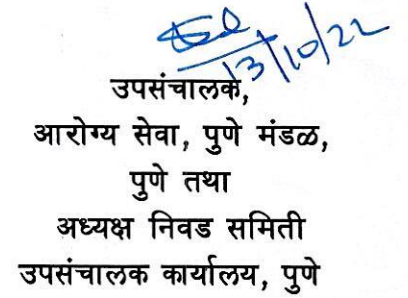 13/10/22
उपसंचालक,
आरोग्य सेवा, पुणे मंडळ,
पुणे तथा
अध्यक्ष निवड समिती
उपसंचालक कार्यालय, पुणे